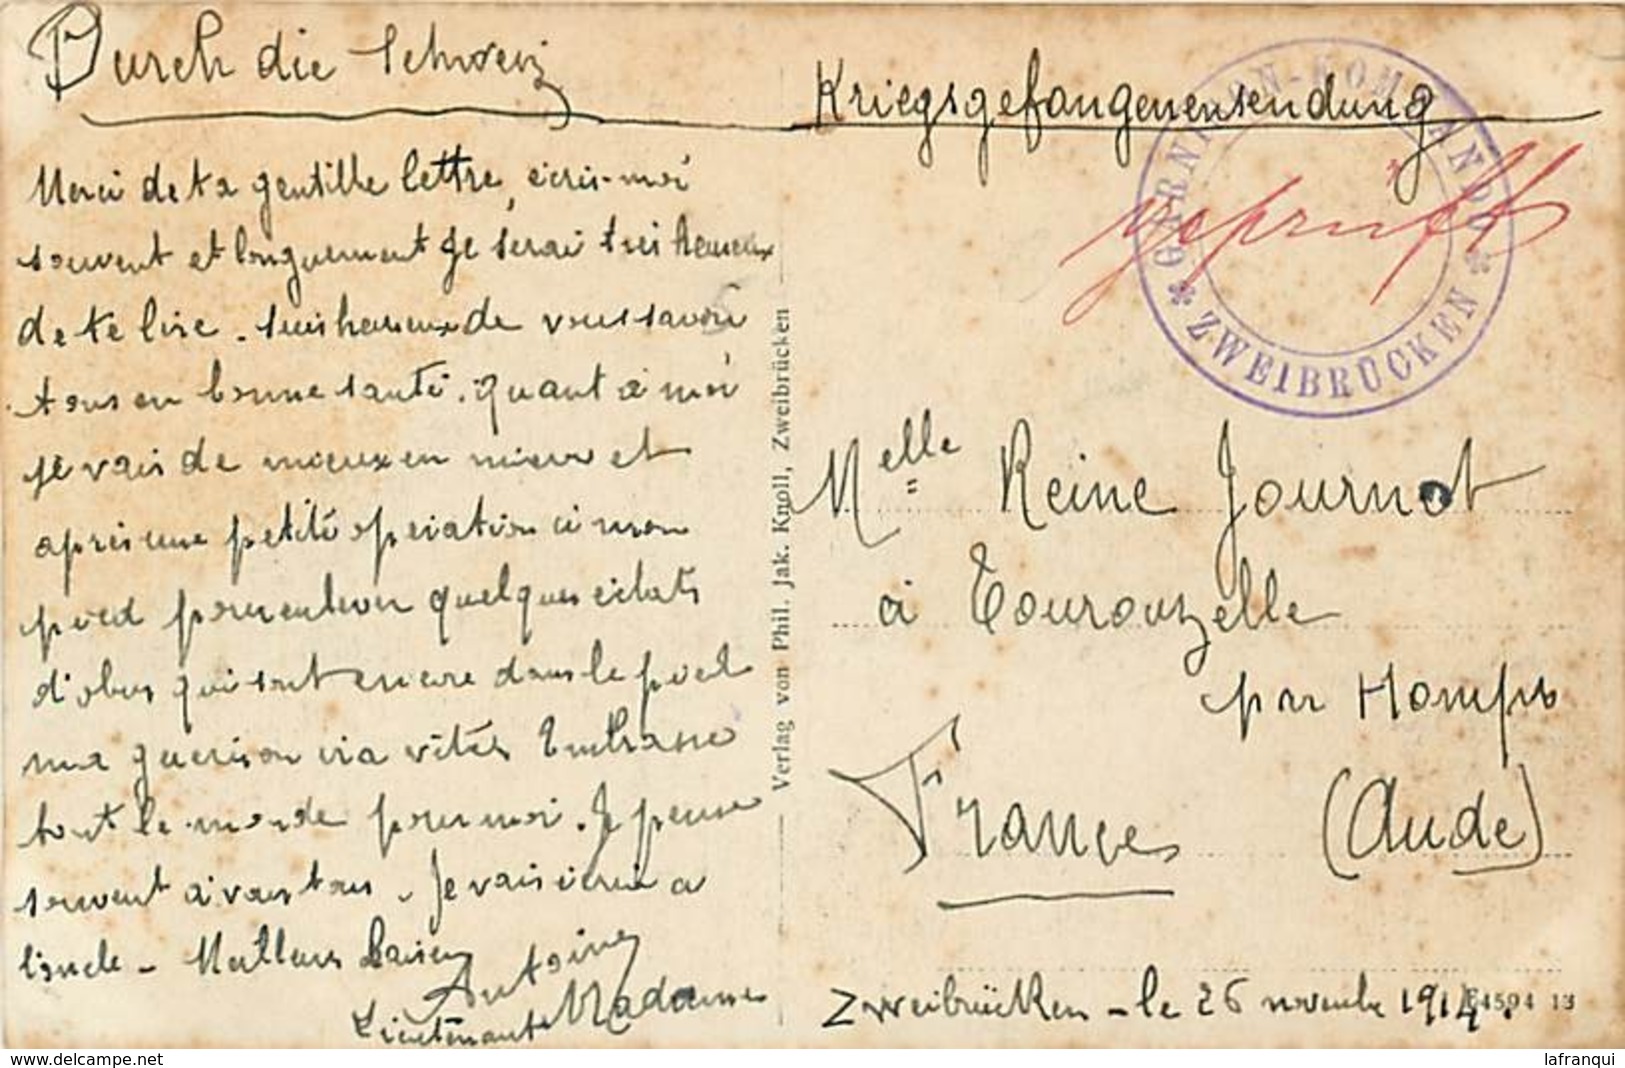 Durch die Schweiz
Kriegsgefangenensendung
GARNISON-KOMMANDO
ZWEIBRÜCKEN
geprüft
Merci de ta gentille lettre, écris-moi
souvent et longuement je serai très heureux
de te lire. Suis heureux de vous savoir
tous en bonne santé. Quant à moi
je vais de mieux en mieux et
après une petite opération à mon
pied pour enlever quelques éclats
d'obus qui sont encore dans le pied
ma guerison ira vite. Embrasse
tout le monde pour moi. Je pense
souvent à vous tous. Je vais écrire a
l'oncle - Meilleurs Baisers
Antoine
Lieutenant Madaune
Verlag von Phil. Jak. Knoll, Zweibrücken
Melle Reine Journot
à Tourouzelle
par Homps
France (Aude)
Zweibrücken - le 26 novembre 1914.
4594 13
lafranqui